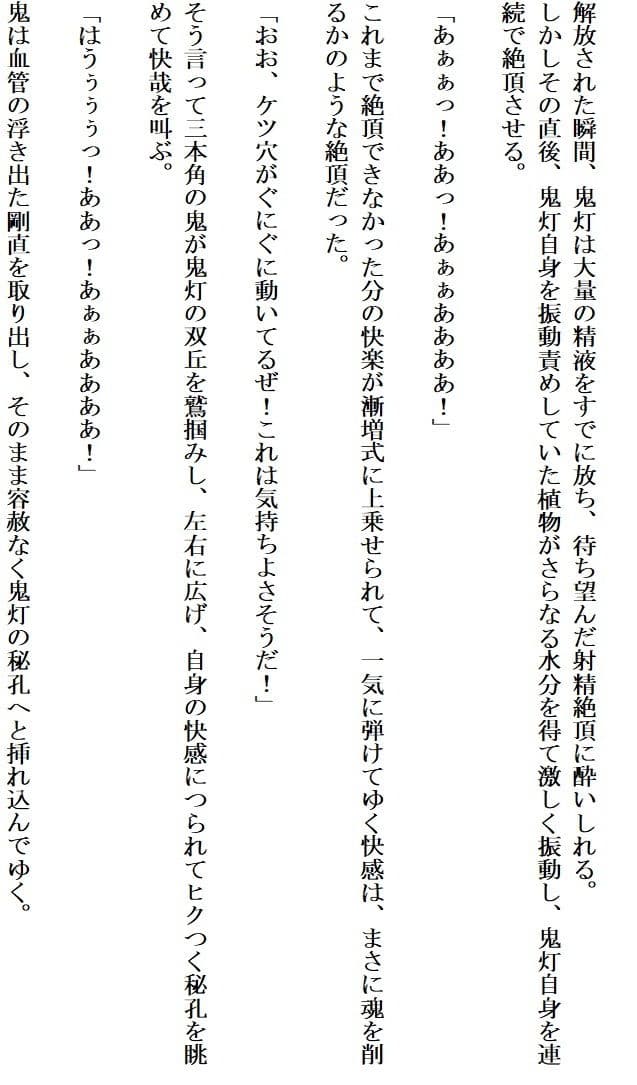 解放された瞬間、鬼灯は大量の精液をすでに放ち、待ち望んだ射精絶頂に酔いしれる。
しかしその直後、鬼灯自身を振動責めしていた植物がさらなる水分を得て激しく振動し、鬼灯自身を連
続で絶頂させる。
「あぁぁっ！ああっ！あぁぁあああ！」
これまで絶頂できなかった分の快楽が漸増式に上乗せられて、一気に弾けてゆく快感は、まさに魂を削
るかのような絶頂だった。
「おお、ケツ穴がぐにぐに動いてるぜ！これは気持ちよさそうだ！」
そう言って三本角の鬼が鬼灯の双丘を鷲掴みし、左右に広げ、自身の快感につられてヒクつく秘孔を眺
めて快哉を叫ぶ。
「はうぅぅぅっ！ああっ！あぁぁああああ！」
鬼は血管の浮き出た剛直を取り出し、そのまま容赦なく鬼灯の秘孔へと挿れ込んでゆく。